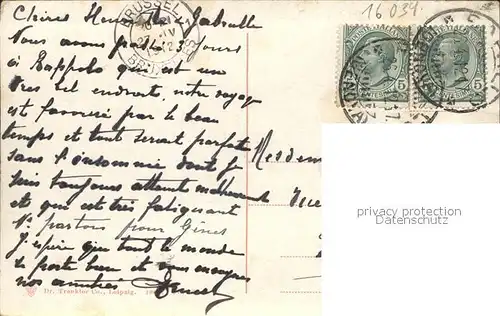 Chères Henriette & Gabrielle
Nous avons passé 3 jours
à Rappolo qui est un
très bel endroit, notre voyage
est favorisé par le beau
temps et tout serait parfait
sans l'insomnie dont je
suis toujours atteint malheureusement
et qui est très fatiguant
N. partons pour Gênes
J'espère que tout le monde
se porte bien et vous envoyons
nos amitiés
Dr. Trenkler Co., Leipzig.
BRUSSEL
BRUXELLES
16 034.
POSTE ITALIANE
5
POSTE ITALIANE
5
Mesdem
privacy protection
Datenschutz